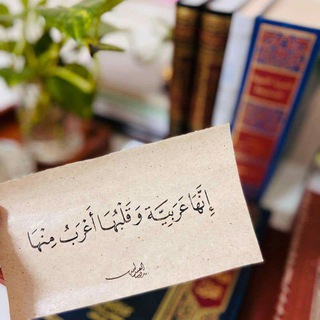 إِنَّهَا عَرَبِيَّة وَقَلْبُهَا أَعْرَبُ مِنْهَا